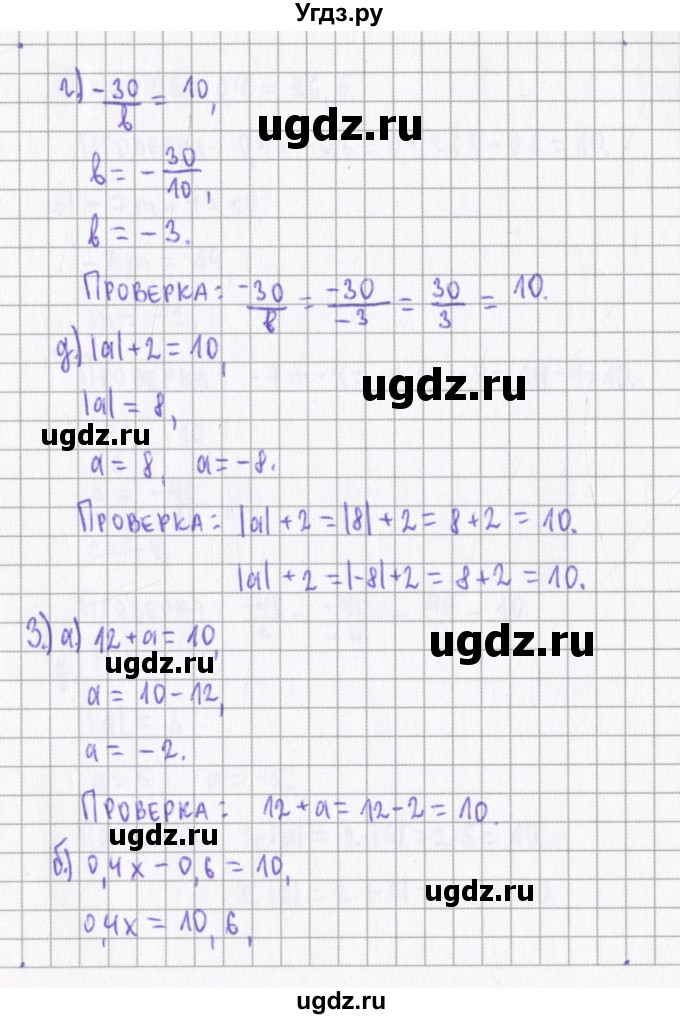 Угдз.ру
г.) -30/в = 10,
ugdz.ru
в = - 30/10,
в = - 3.
ПРОВЕРКА: -30/в = -30/-3 = 30/3 = 10.
д.) |a| + 2 = 10,
ugdz.ru
|a| = 8,
ugdz.ru
a = 8, a = -8.
ПРОВЕРКА: |a| + 2 = |8| + 2 = 8 + 2 = 10.
|a| + 2 = |-8| + 2 = 8 + 2 = 10.
3.) а) 12 + a = 10,
ugdz.ru
ugdz.ru
a = 10 - 12,
a = - 2.
ПРОВЕРКА: 12 + a = 12 - 2 = 10.
ugdz.ru
б.) 0,4x - 0,6 = 10,
ugdz.ru
0,4x = 10,6,
ugdz.ru